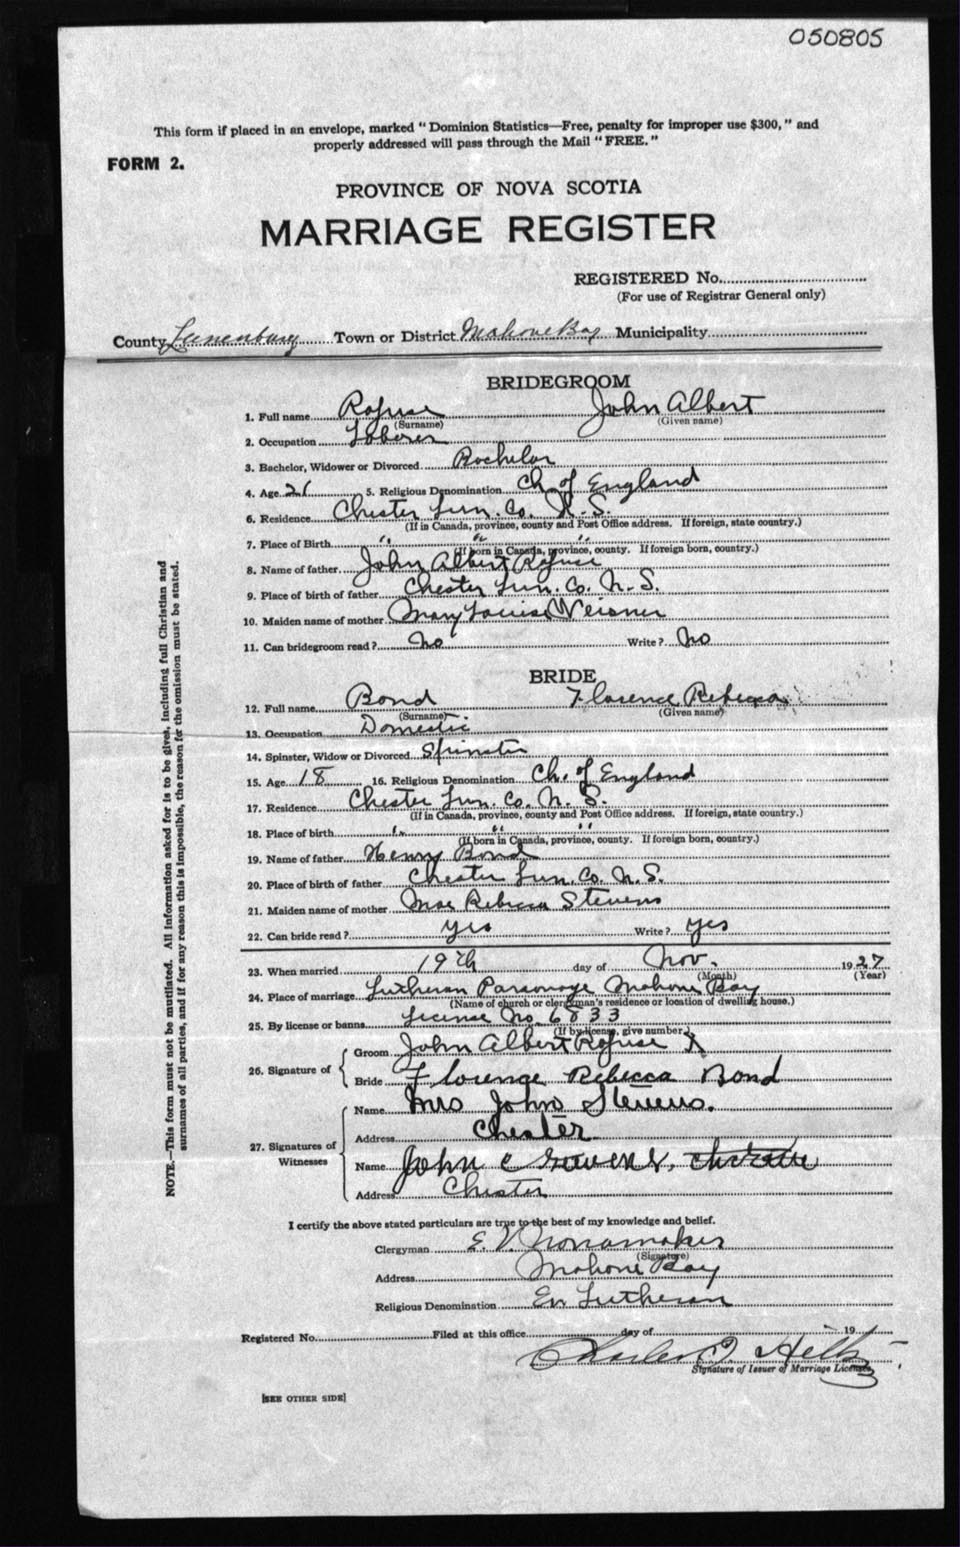 050805
This form if placed in an envelope, marked "Dominion Statistics—Free, penalty for improper use $300," and
properly addressed will pass through the Mail "FREE."
FORM 2.
PROVINCE OF NOVA SCOTIA
MARRIAGE REGISTER
REGISTERED No.
(For use of Registrar General only)
County Lunenburg Town or District Mahone Bay Municipality
BRIDEGROOM
1. Full name Rafuse John Albert
(Surname) (Given name)
2. Occupation Laborer
3. Bachelor, Widower or Divorced Bachelor
4. Age 21 5. Religious Denomination Ch of England
6. Residence Chester Lun. Co. N.S.
(If in Canada, province, county and Post Office address. If foreign, state country.)
7. Place of Birth " " "
(If born in Canada, province, county. If foreign born, country.)
8. Name of father John Albert Rafuse
9. Place of birth of father Chester Lun. Co. N.S.
10. Maiden name of mother Mary Louise Veisner
11. Can bridegroom read? No Write? No
BRIDE
12. Full name Bond Florence Rebecca
(Surname) (Given name)
13. Occupation Domestic
14. Spinster, Widow or Divorced Spinster
15. Age 18 16. Religious Denomination Ch. of England
17. Residence Chester Lun. Co. N.S.
(If in Canada, province, county and Post Office address. If foreign, state country.)
18. Place of birth " " "
(If born in Canada, province, county. If foreign born, country.)
19. Name of father Henry Bond
20. Place of birth of father Chester Lun. Co. N.S.
21. Maiden name of mother Mae Rebecca Stevens
22. Can bride read? yes Write? yes
23. When married 19th day of Nov. 1927
(Month) (Year)
24. Place of marriage Lutheran Parsonage Mahone Bay
(Name of church or clergyman's residence or location of dwelling house.)
25. By license or banns License No. 6833
(If by license, give number.)
26. Signature of
Groom John Albert Rafuse X
Bride Florence Rebecca Bond
27. Signatures of Witnesses
Name Mrs John Stevens.
Address Chester
Name John C
Address Chester
I certify the above stated particulars are true to the best of my knowledge and belief.
Clergyman E. V. Nonamaker
(Signature)
Address Mahone Bay
Religious Denomination Ev Lutheran
Registered No. Filed at this office day of 19
Charles
Signature of Issuer of Marriage Licenses
[SEE OTHER SIDE]
NOTE.—This form must not be mutilated. All information asked for is to be given, including full Christian and
surnames of all parties, and if for any reason this is impossible, the reason for the omission must be stated.